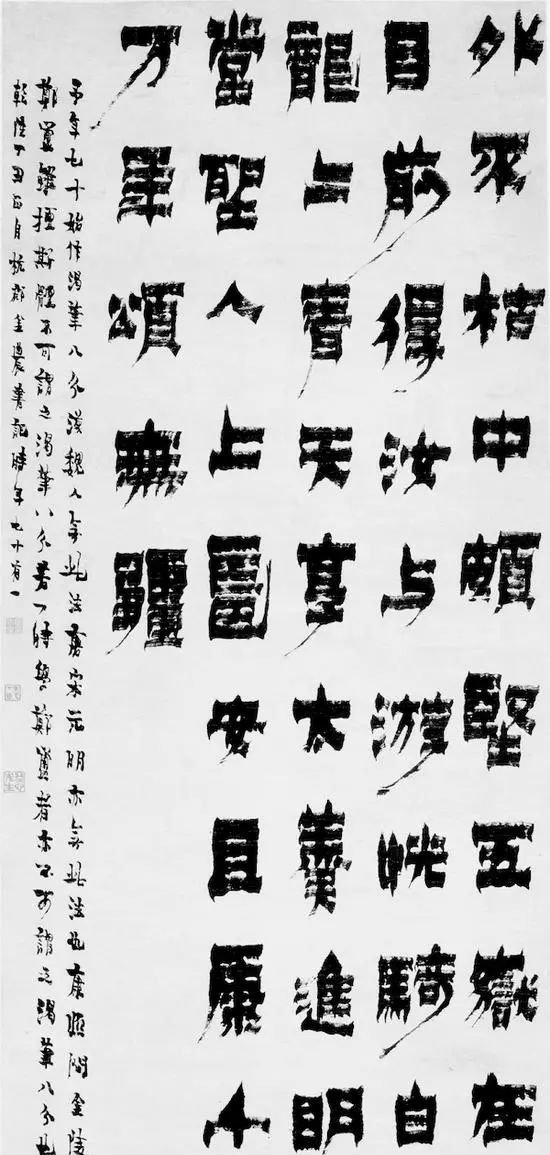 外采枯中頗堅五嶽在
目前得汝与游恍騎白
龍上青天享太羹進明
堂聖人上圖安且康千
万年頌無疆
予年七十始作渴筆八分漢魏人無此法唐宋元明亦無此法也康熙間金陵
鄭簠雖擅斯體不可謂之渴筆八分若一時學鄭簠者亦不可謂之渴筆八分也
乾隆丁丑正月杭郡金農筆記時年七十有一